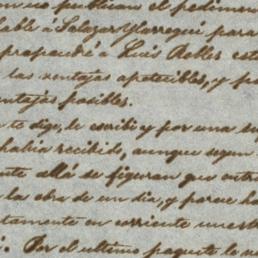 no publican el pedimen
hable á Salazar Ylarregui para
propondré á Luis Robles est
las ventajas apetecibles, y p
entajas posibles.
te dige, le escribi y por una su
habia recibido, aunque segun
nte allá se figuran que entr
la obra de un dia, y porque ha
tamente en corriente nuestr
Por el ultimo paquete le